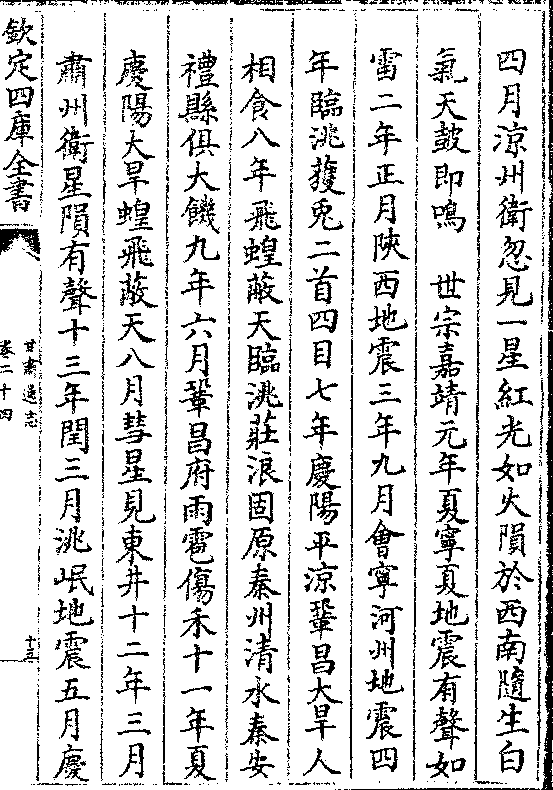 四月涼州衛忽見一星紅光如火隕於西南隨生白
氣天鼓即鳴　世宗嘉靖元年夏寧夏地震有聲如
雷二年正月陜西地震三年九月會寧河州地震四
年臨洮獲兎二首四目七年慶陽平涼鞏昌大旱人
相食八年飛蝗蔽天臨洮莊浪固原秦州清水秦安
禮縣俱大饑九年六月鞏昌府雨雹傷禾十一年夏
慶陽大旱蝗飛蔽天八月彗星見東井十二年三月
肅州衛星隕有聲十三年閏三月洮岷地震五月慶
欽定四庫全書
甘肅通志
卷二十四
十五